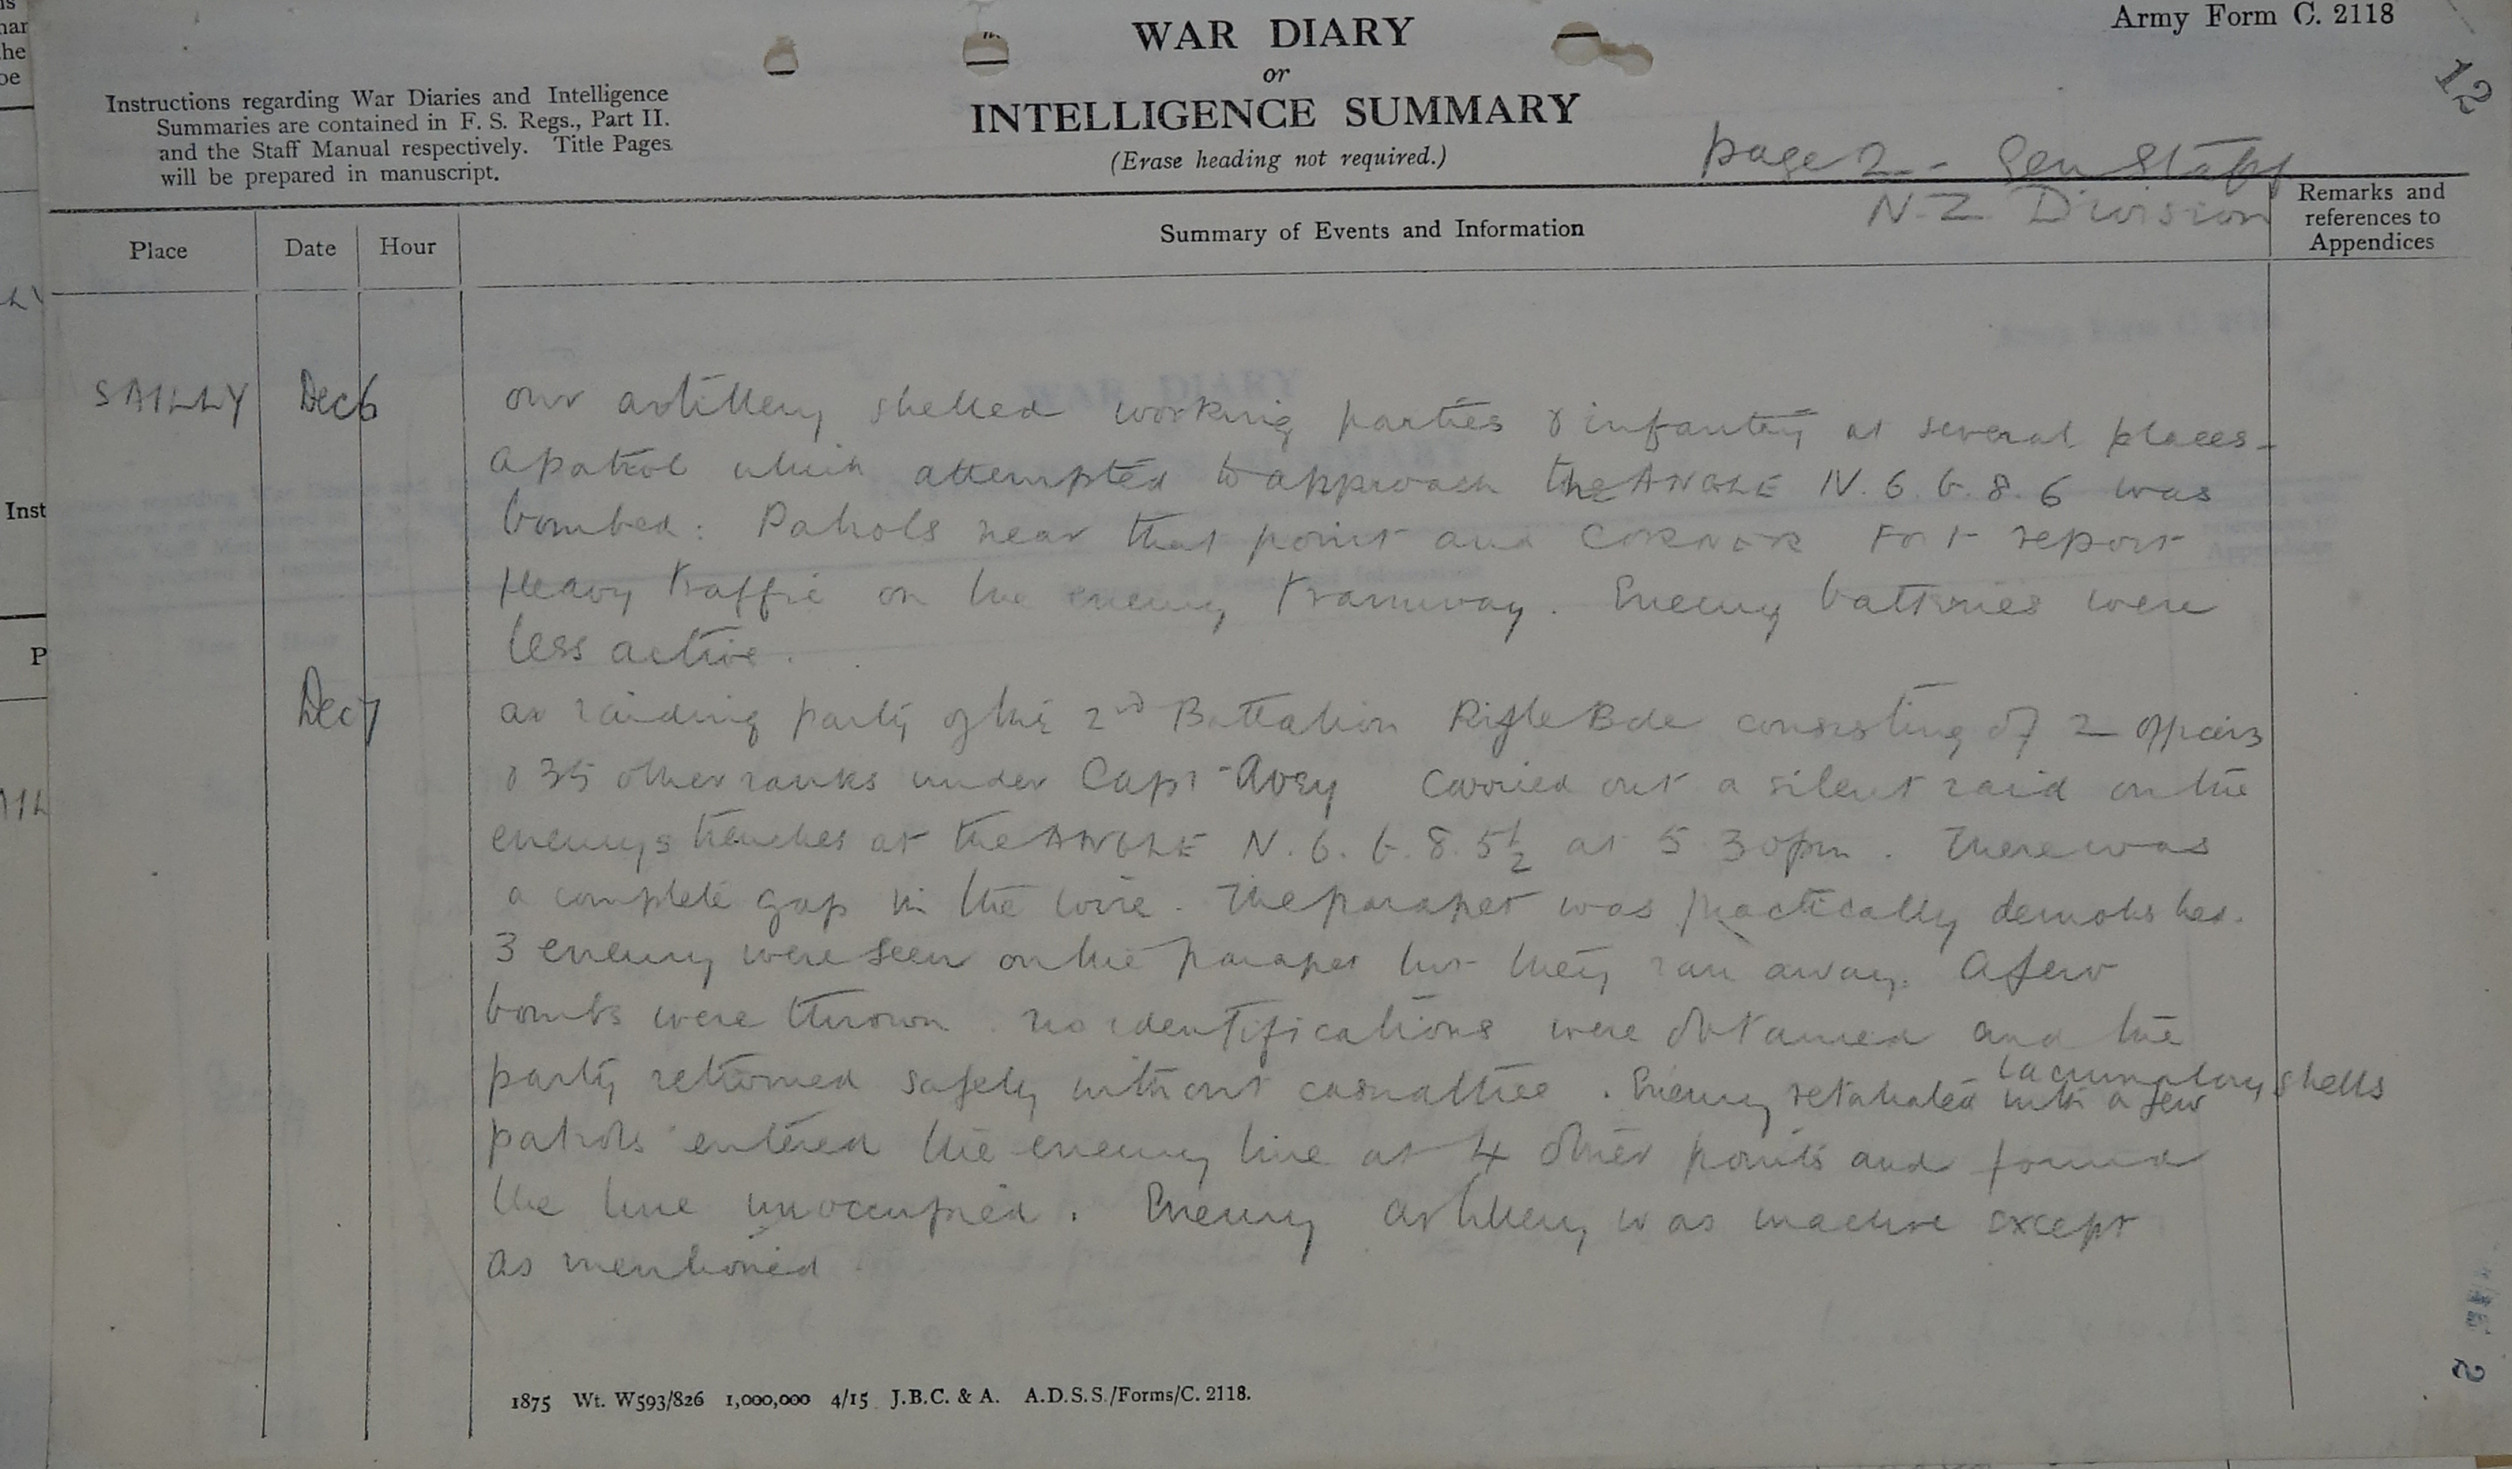 Army Form C. 2118
12
WAR DIARY
or
INTELLIGENCE SUMMARY
(Erase heading not required.)
Instructions regarding War Diaries and Intelligence
Summaries are contained in F. S. Regs., Part II.
and the Staff Manual respectively. Title Pages
will be prepared in manuscript.
page 2 - Gen Staff
N.Z Division
Place
Date
Hour
Summary of Events and Information
Remarks and
references to
Appendices
SAILLY Dec 6 our artillery shelled working parties & infantry at several places -
A patrol which attempted to approach the ANGLE N. 6. b. 8. 6 was
bombed: Patrols near that point and CORNER Fort report
Heavy traffic on the enemy tramway. Enemy batteries were
less active.
Dec 7 a raiding party of the 2nd Battalion Rifle Bde consisting of 2 officers
& 35 other ranks under Capt Avey carried out a silent raid on the
enemys trenches at the ANGLE N. 6. b. 8. 5½ at 5 30pm. There was
a complete gap in the wire. The parapet was practically demolished.
3 enemy were seen on the parapet but they ran away. A few
bombs were thrown. no identifications were obtained and the
party returned safely without casualties. Enemy retaliated with a few lacrymatory shells
patrols entered the enemy line at 4 other points and found
the line unoccupied. Enemy artillery was inactive except
as mentioned
1875 Wt. W593/826 1,000,000 4/15 J.B.C. & A. A.D.S.S./Forms/C. 2118.
2